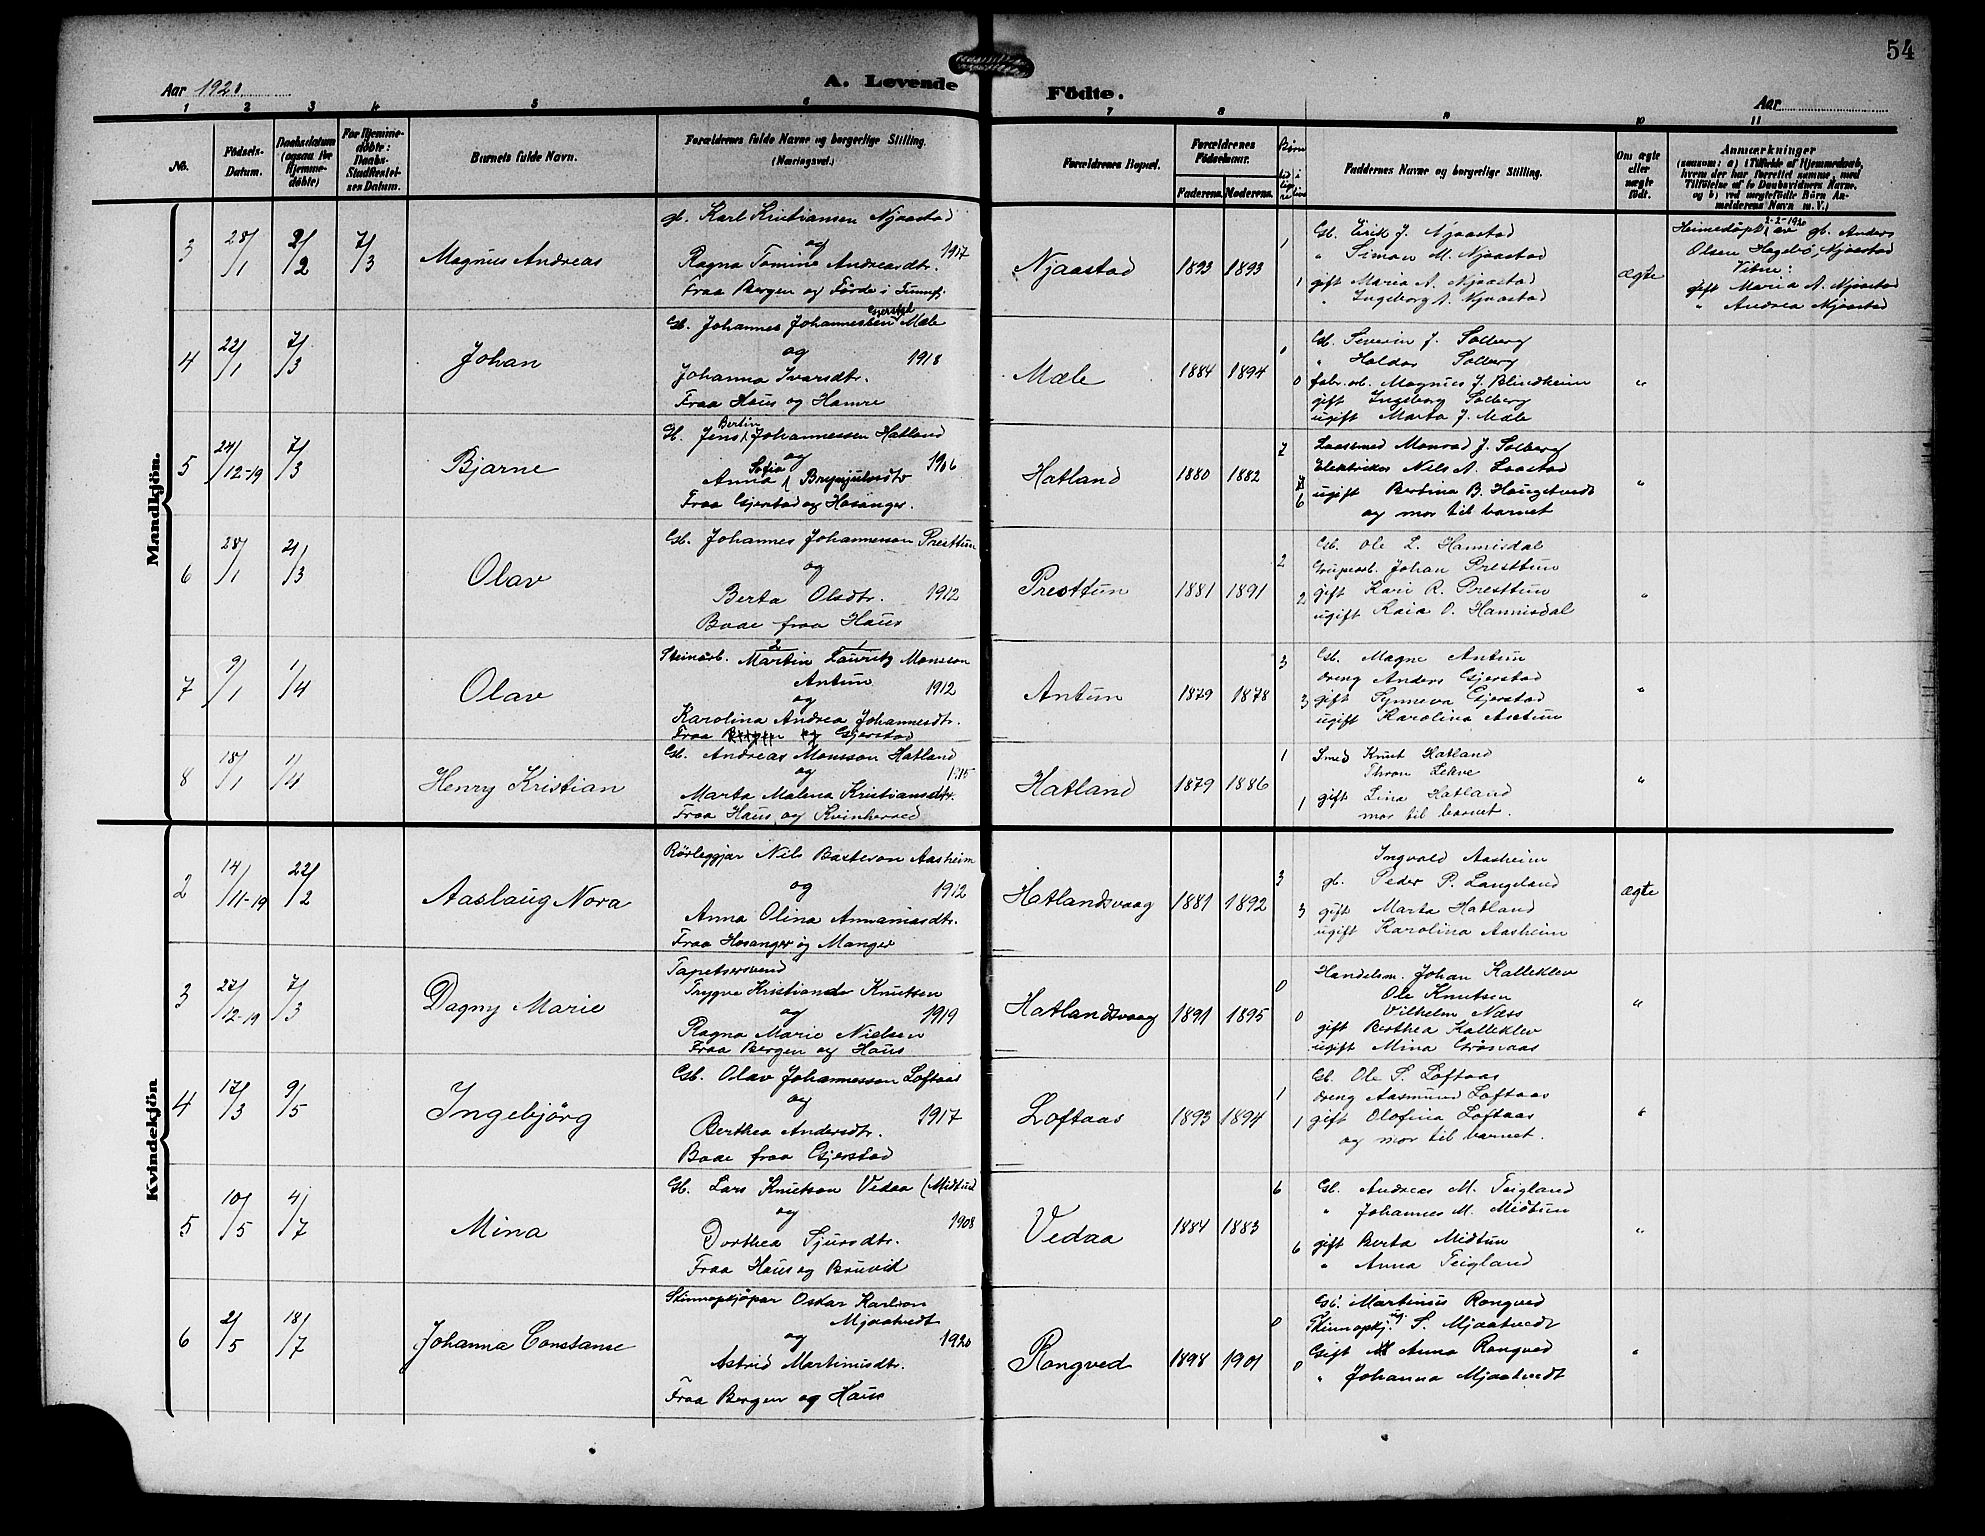 54
Aar 1920
A. Levende
Födte.
Aar
1 2 3 4 5 6 7 8 9 10 11
No.
Födsels-Datum.
Daabsdatum (ogsaa for Hjemme-döbte)
For Hjemme-döbte: Daabs-Stadfæstel-ses Datum.
Barnets fulde Navn.
Forældrenes fulde Navne og borgerlige Stilling.
(Næringsvei.)
Forældrenes Bopæl.
Forældrenes Födselsaar.
Faderens. Moderens.
Börn
Faddernes Navne og borgerlige Stilling.
Om ægte eller uægte födt.
Anmærkninger
(saasom: a) i Tilfælde af Hjemmedaab, hvem der har forrettet samme, med Tilföielse af to Daabsvidners Navne, og b) ved uægtefödte Börn An-melderens Navn m. V.)
Mandkjön.
3 28/1 2/2 7/3 Magnus Andreas
gb. Karl Kristiansen Njaastad
og 1917
Ragna Tomine Andreasdtr.
Fraa Bergen og Förde i Sunnfj.
Njaastad 1893 1893 1 1
Gb. Erik J. Njaastad
" Simon M. Njaastad
gift Maria A. Njaastad
" Ingeborg A. Njaastad
ægte
2-2-1920
Heimedöpt av gb. Anders
Olsen Hagebö, Njaastad
Vitne:
gift Maria A. Njaastad
" Andrea Njaastad
4 22/1 7/3 Johan
Gjerstad
Gb. Johannes Johannessen Mæle
og 1918
Johanna Ivarsdtr.
Fraa Haus og Hamre
Mæle 1884 1894 0 0
Gb. Severin J. Solberg
" Haldor Solberg
fabr.arb. Magnus J. Blindheim
gift Ingeborg Solberg
ugift Marta J. Mæle
"
5 24/12-19 7/3 Bjarne
Bertin
Gb. Jens Johannessen Hatland
og 1906
Sofia
Anna Brynjulvsdtr
Fraa Gjerstad og Hosanger.
Hatland 1880 1882 7 6
Laasmed Monrad J. Solberg
Elektriker Nils A. Laastad
ugift Bertina B. Haugstvedt
og mor til barnet
"
6 28/1 21/3 Olav
Gb. Johannes Johannesson Presttun
og
Berta Olsdtr. 1912
Baae fraa Haus
Presttun 1881 1891 2 2
Gb. Ole L. Hannisdal
Johan Presttun
gift Kari R. Presttun
ugift Kaia O. Hannisdal
"
7 9/1 1/4 Olav
2 1
Steinarb. Martin Lauritz Monsson
Antun 1912
og
Karolina Andrea Johannesdtr.
Fraa Gjerstad
Antun 1879 1878 3 3
Gb. Magne Antun
dreng Anders Gjerstad
gift Synneva Gjerstad
ugift Karolina Antun
"
8 18/1 1/4 Henry Kristian
Gb. Andreas Monsson Hatland
og 1915
Marta Malena Kristiansdtr.
Fraa Haus og Kvinherred
Hatland 1879 1886 1 1
Smed Knut Hatland
Thron Lekve
gift Lina Hatland
mor til barnet.
"
Kvindekjön
2 14/11-19 22/2 Aaslaug Nora
Rörleggjar Nils Basteson Aasheim
og 1912
Anna Olina Annaniasdtr.
Fraa Hosanger og Manger
Hatlandsvaag 1881 1892 3 3
Ingvald Aasheim
gb. Peder P. Langeland
gift Marta Hatland
ugift Karolina Aasheim
ægte
3 27/12-19 7/3 Dagny Marie
Tapetsersvend
Trygve Kristiande Knutsen
og 1919
Ragna Marie Nielsen
Fraa Bergen og Haus
Hatlandsvaag 1891 1895 0 0
Handelsm. Johan Kalleklev
Ole Knutsen
Vilhelm Næss
gift Berthea Kalleklev
ugift Mina Grönaas
"
4 17/3 9/5 Ingebjörg
Gb. Olav Johannesson Loftaas
og 1917
Berthea Andersdtr.
Baae fraa Gjerstad
Loftaas 1893 1894 1 1
Gb. Ole S. Loftaas
dreng Aasmund Loftaas
gift Olofina Loftaas
og mor til barnet.
"
5 10/5 4/7 Mina
Gb. Lars Knutson Vedaa (Midtun
og 1908
Dorthea Sjursdtr.
Fraa Haus og Bruvid
Vedaa 1884 1883 6 6
Gb. Andreas M. Teigland
" Johannes M. Midtun
gift Berta Midtun
" Anna Teigland
"
6 2/5 18/7 Johanna Constanse
Skinnopkjöpar Oskar Karlson
Mjaatvedt
og 1920
Astrid Martinusdtr.
Fraa Bergen og Haus
Rongved 1898 1901 0 0
Gb. Martinus Rongved
Skinnopkj. S. Mjaatvedt
Gift Anna Rongved
" Johanna Mjaatvedt
"